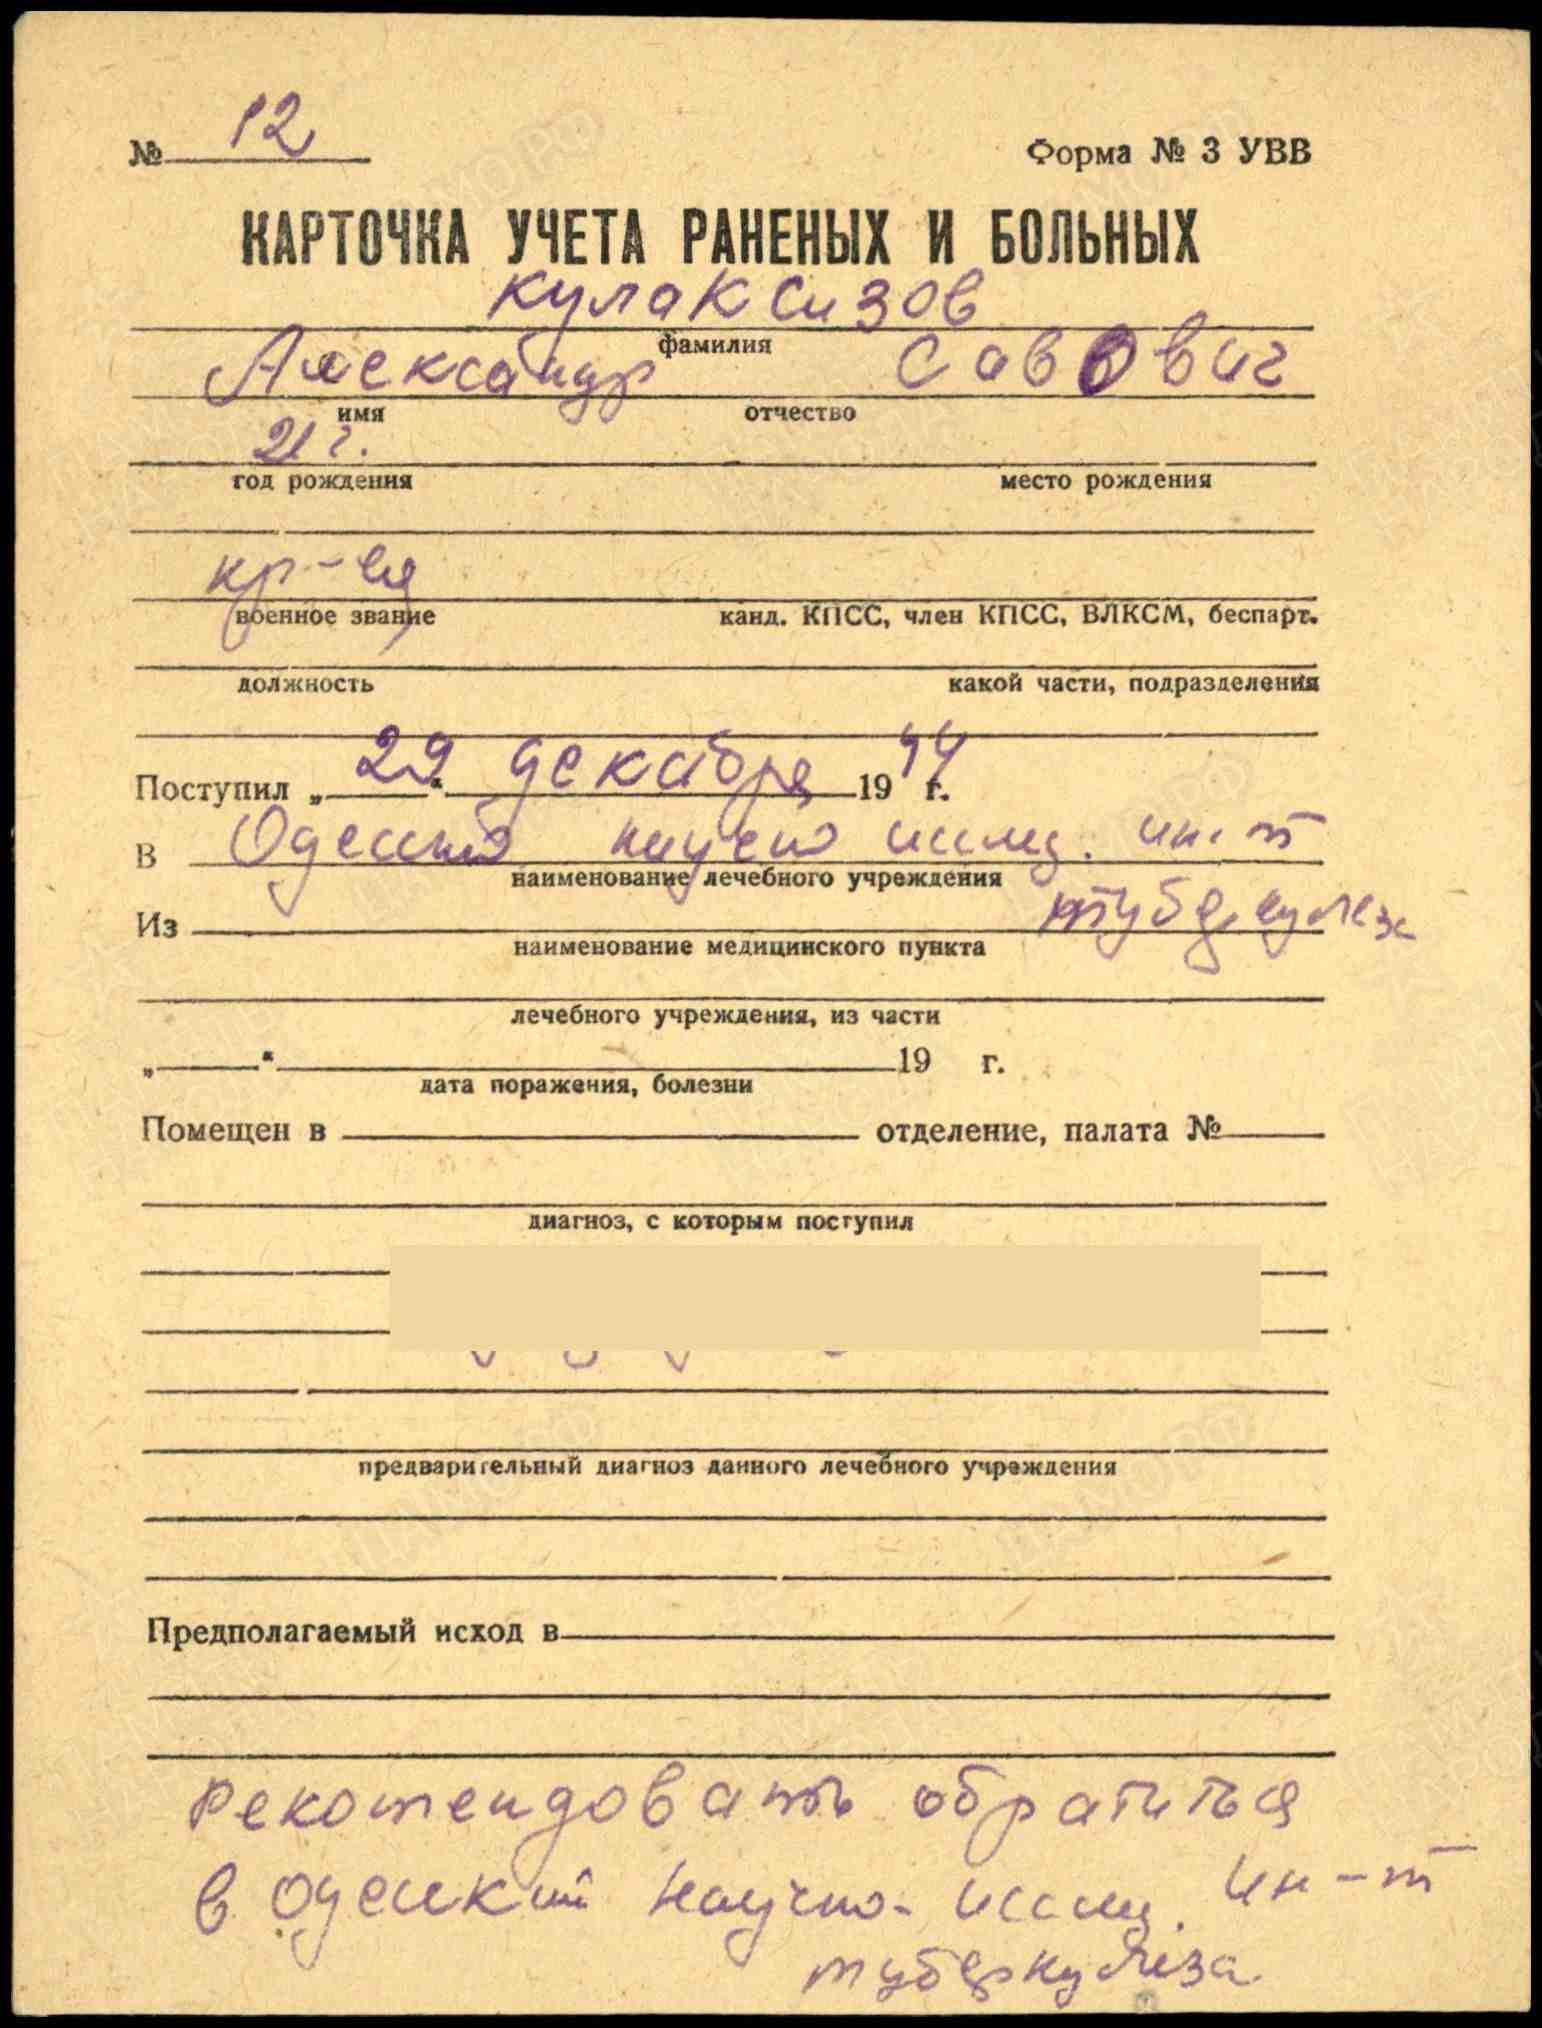 № 12
Форма № 3 УВВ
КАРТОЧКА УЧЕТА РАНЕНЫХ И БОЛЬНЫХ
Кулаксизов
фамилия
Александр Саввович
имя отчество
21 г.
год рождения место рождения
кр-ец
военное звание канд. КПСС, член КПСС, ВЛКСМ, беспарт.
должность какой части, подразделения
Поступил „29“ декабря 1944 г.
В Одесский научно исслед. ин-т
наименование лечебного учреждения
туберкулеза
Из
наименование медицинского пункта
лечебного учреждения, из части
„ “ 19 г.
дата поражения, болезни
Помещен в отделение, палата №
диагноз, с которым поступил
предварительный диагноз данного лечебного учреждения
Предполагаемый исход в
рекомендовать обратиться
в одесский научно-исслед. ин-т
туберкулеза